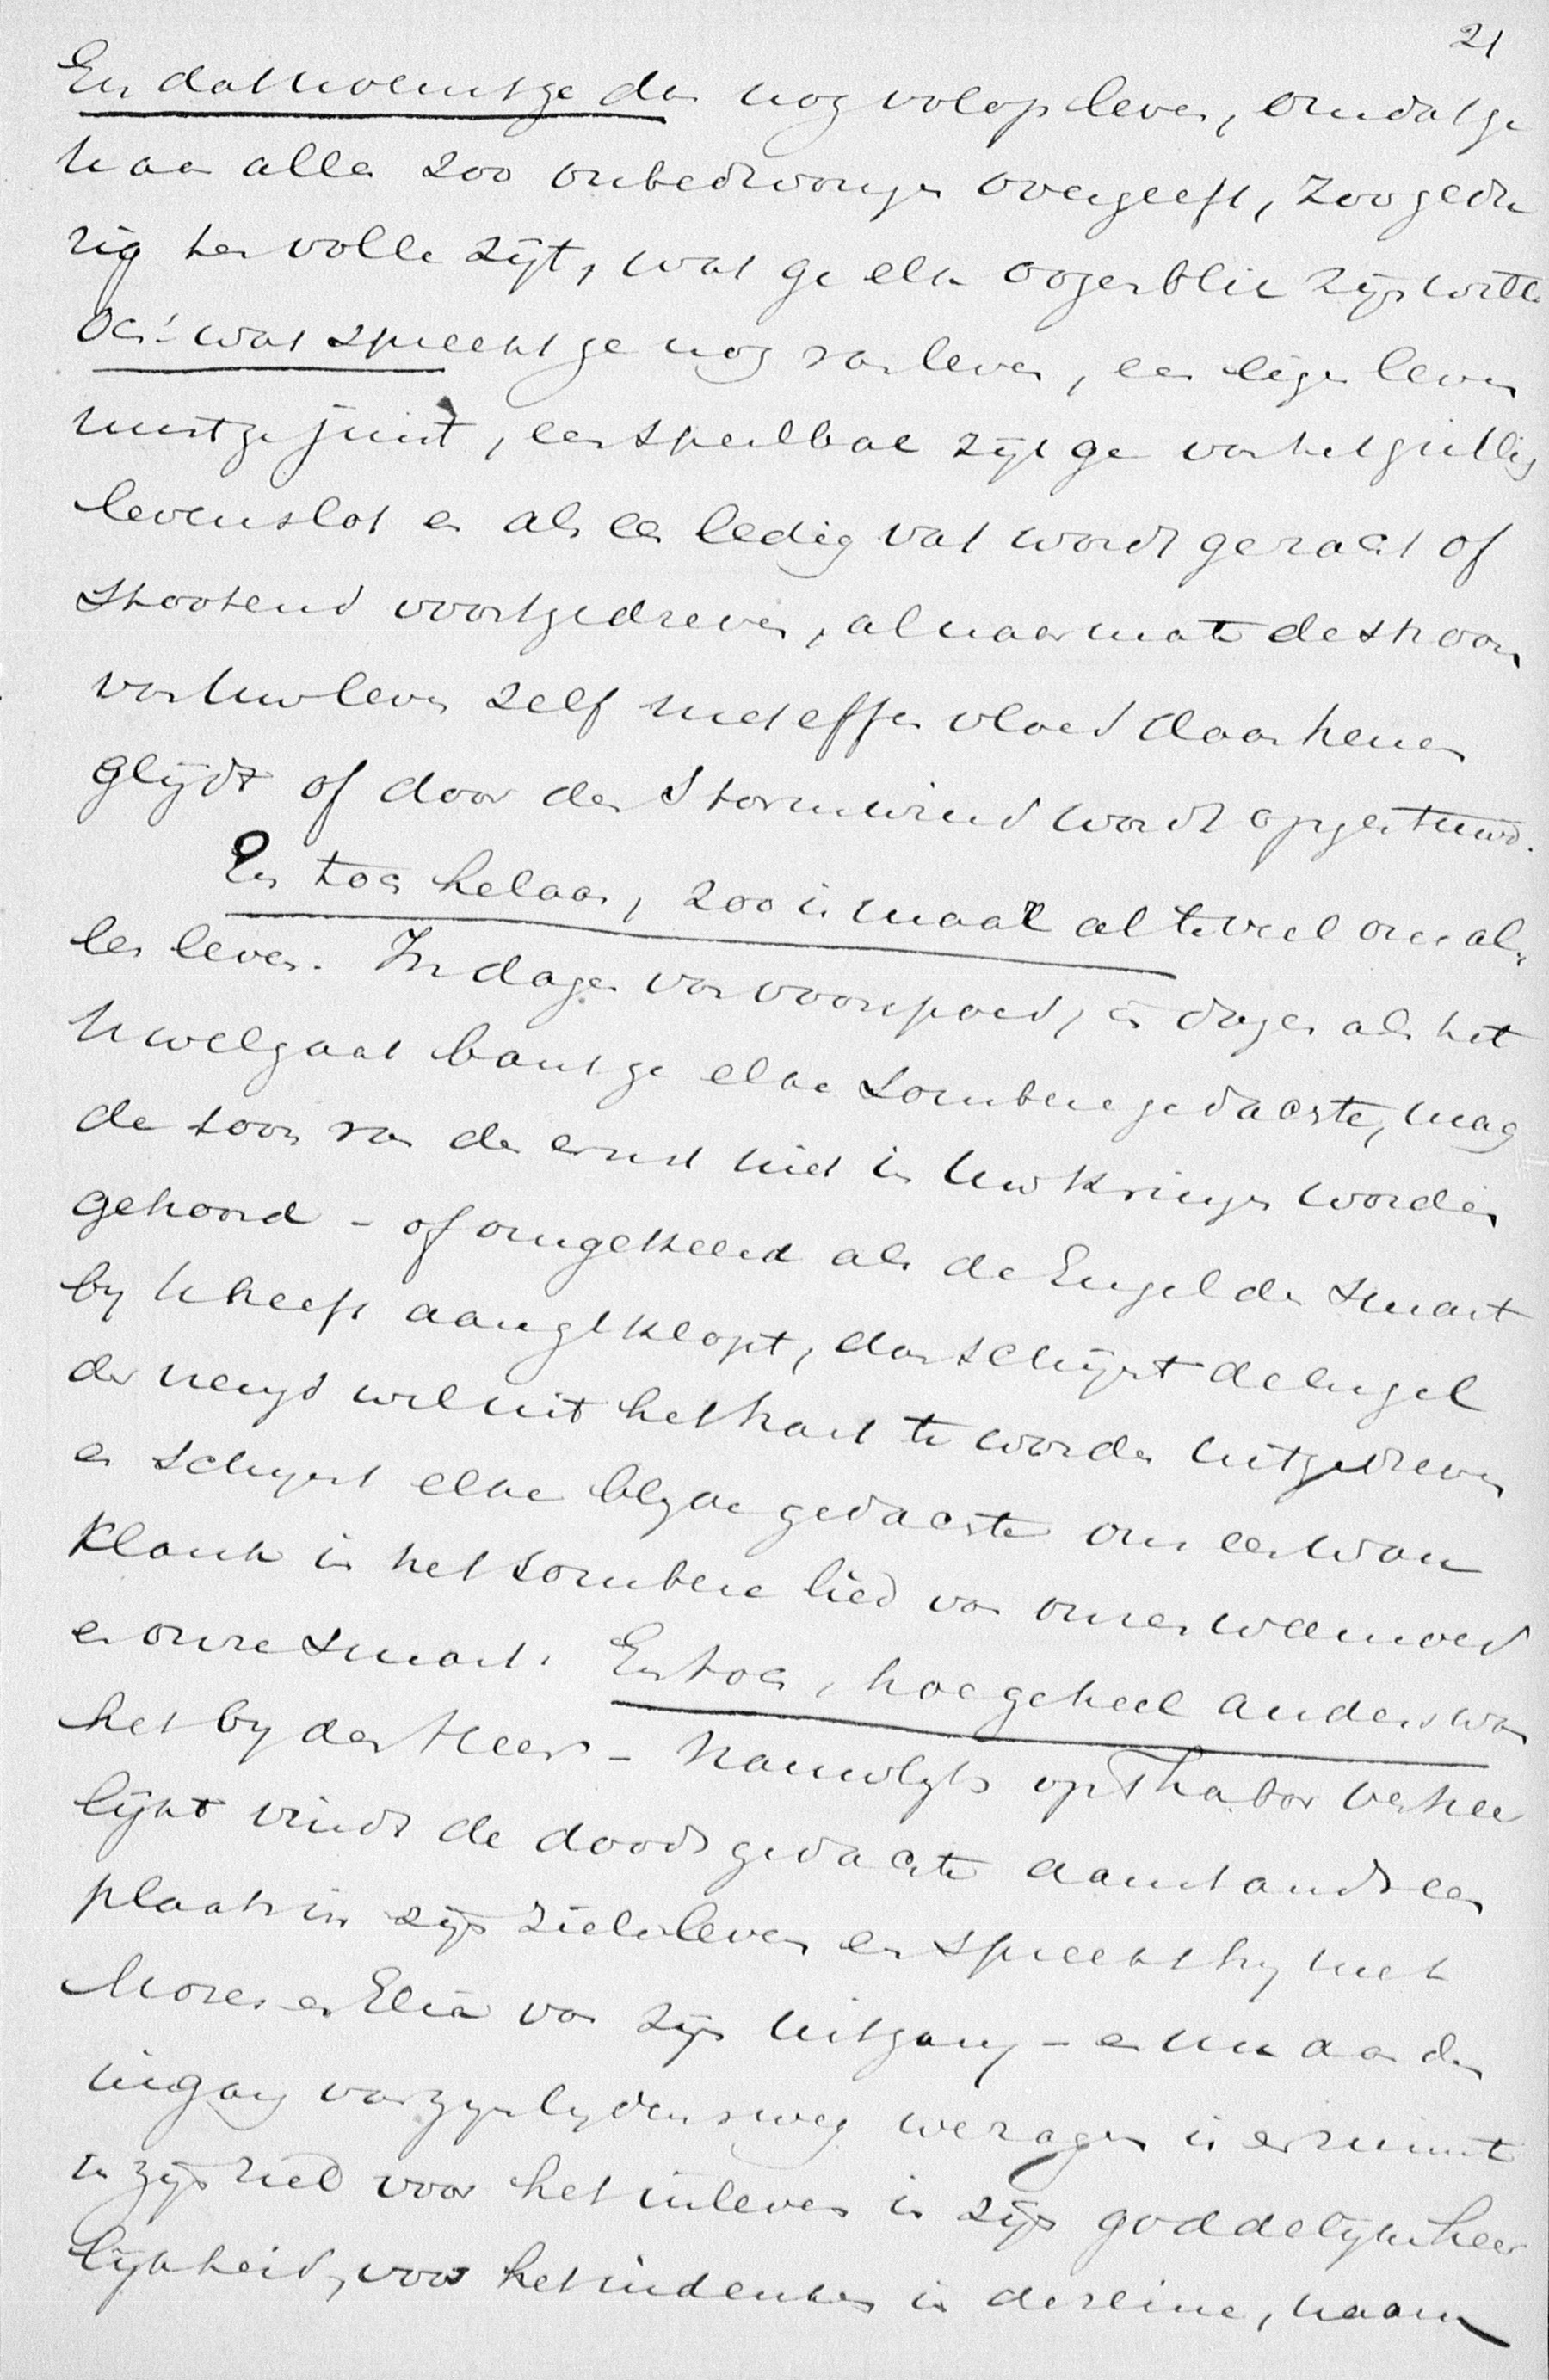 21
En dat noemt ge dan nog volop leven, omdat ge
U aan alles zoo onbedwongen overgeeft, zoo gedu
rig ten volle zijt, wat ge elk oogenblik zijn wilt
Och! wat spreekt ge nog van leven, een eigen leven
mist ge juist, een speelbal zijt ge van het grillig
levenslot en als een ledig vat wordt ge zacht of
stootend voortgedreven, al naarmate de stroom
van Uw leven zelf met effen vloed daarhenen
glijdt of door den Stormwind wordt opgestuwd.
En toch helaas, zoo is maar al te veel ons al-
ler leven. In dagen van voorspoed, in dagen als het
U wel gaat bant ge elke sombere gedachte, mag
de toon van den ernst niet in Uw kringen worden
gehoord - of omgekeerd als de Engel der smart
by U heeft aangeklopt, dan schijnt de engel
der vreugd wel uit het hart te worden uitgedreven
en schynt elke blyde gedachte ons een wan
klank in het sombere lied van onzen weemoed
en onze smart. En toch, hoe geheel anders was
het by den Heer - Nauwlyks op Thabor verheer
lijkt vindt de doodsgedachte aanstonds een
plaats in zijn zieleleven en spreekt hy met
Mozes en Elia van zijn uitgang - en nu aan den
ingang van zyn lydensweg we zagen is er ruimte
in zijn ziel voor het inleven in zijn goddelijke heer
lijkheid, voor het indenken in de reine,